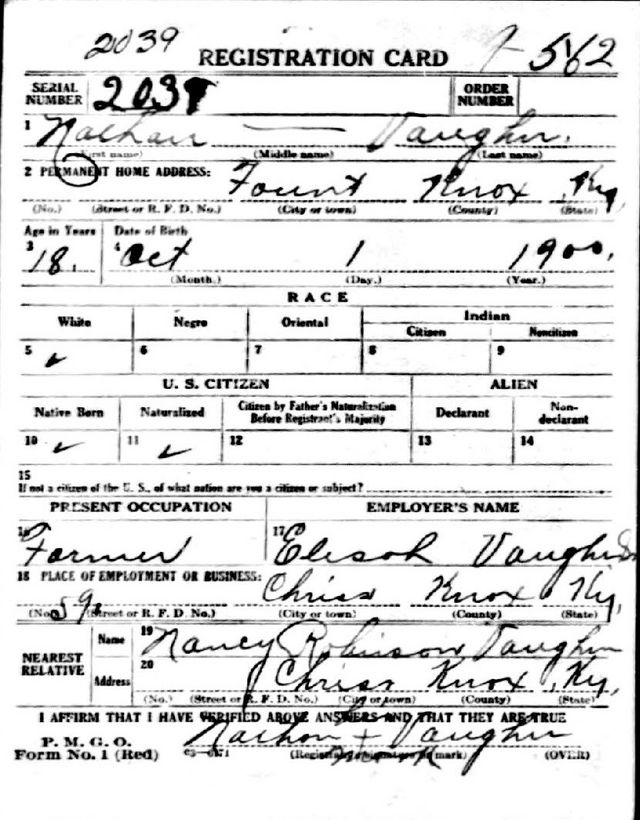 2039
REGISTRATION CARD
562
SERIAL NUMBER 2039 ORDER NUMBER
1 Nathan — Vaughn.
(First name) (Middle name) (Last name)
2 PERMANENT HOME ADDRESS: Fount Knox Ky,
(No.) (Street or R. F. D. No.) (City or town) (County) (State)
Age in Years Date of Birth
3 18. 4 Oct 1 1900.
(Month.) (Day.) (Year.)
RACE
White Negro Oriental Indian
Citizen Noncitizen
5 ✓ 6 7 8 9
U. S. CITIZEN ALIEN
Native Born Naturalized Citizen by Father's Naturalization Before Registrant's Majority Declarant Non-declarant
10 ✓ 11 ✓ 12 13 14
15
If not a citizen of the U. S., of what nation are you a citizen or subject?
PRESENT OCCUPATION EMPLOYER'S NAME
16 Farmer 17 Vaughn
18 PLACE OF EMPLOYMENT OR BUSINESS: Chriss Knox Ky,
(No.) (Street or R. F. D. No.) (City or town) (County) (State)
NEAREST RELATIVE Name 19 Nancy Robinson Vaughn
Address 20 Chriss Knox, Ky,
(No.) (Street or R. F. D. No.) (City or town) (County) (State)
I AFFIRM THAT I HAVE VERIFIED ABOVE ANSWERS AND THAT THEY ARE TRUE
P. M. G. O.
Form No. 1 (Red) Nathan + Vaughn
(Registrant's signature or mark) (OVER)